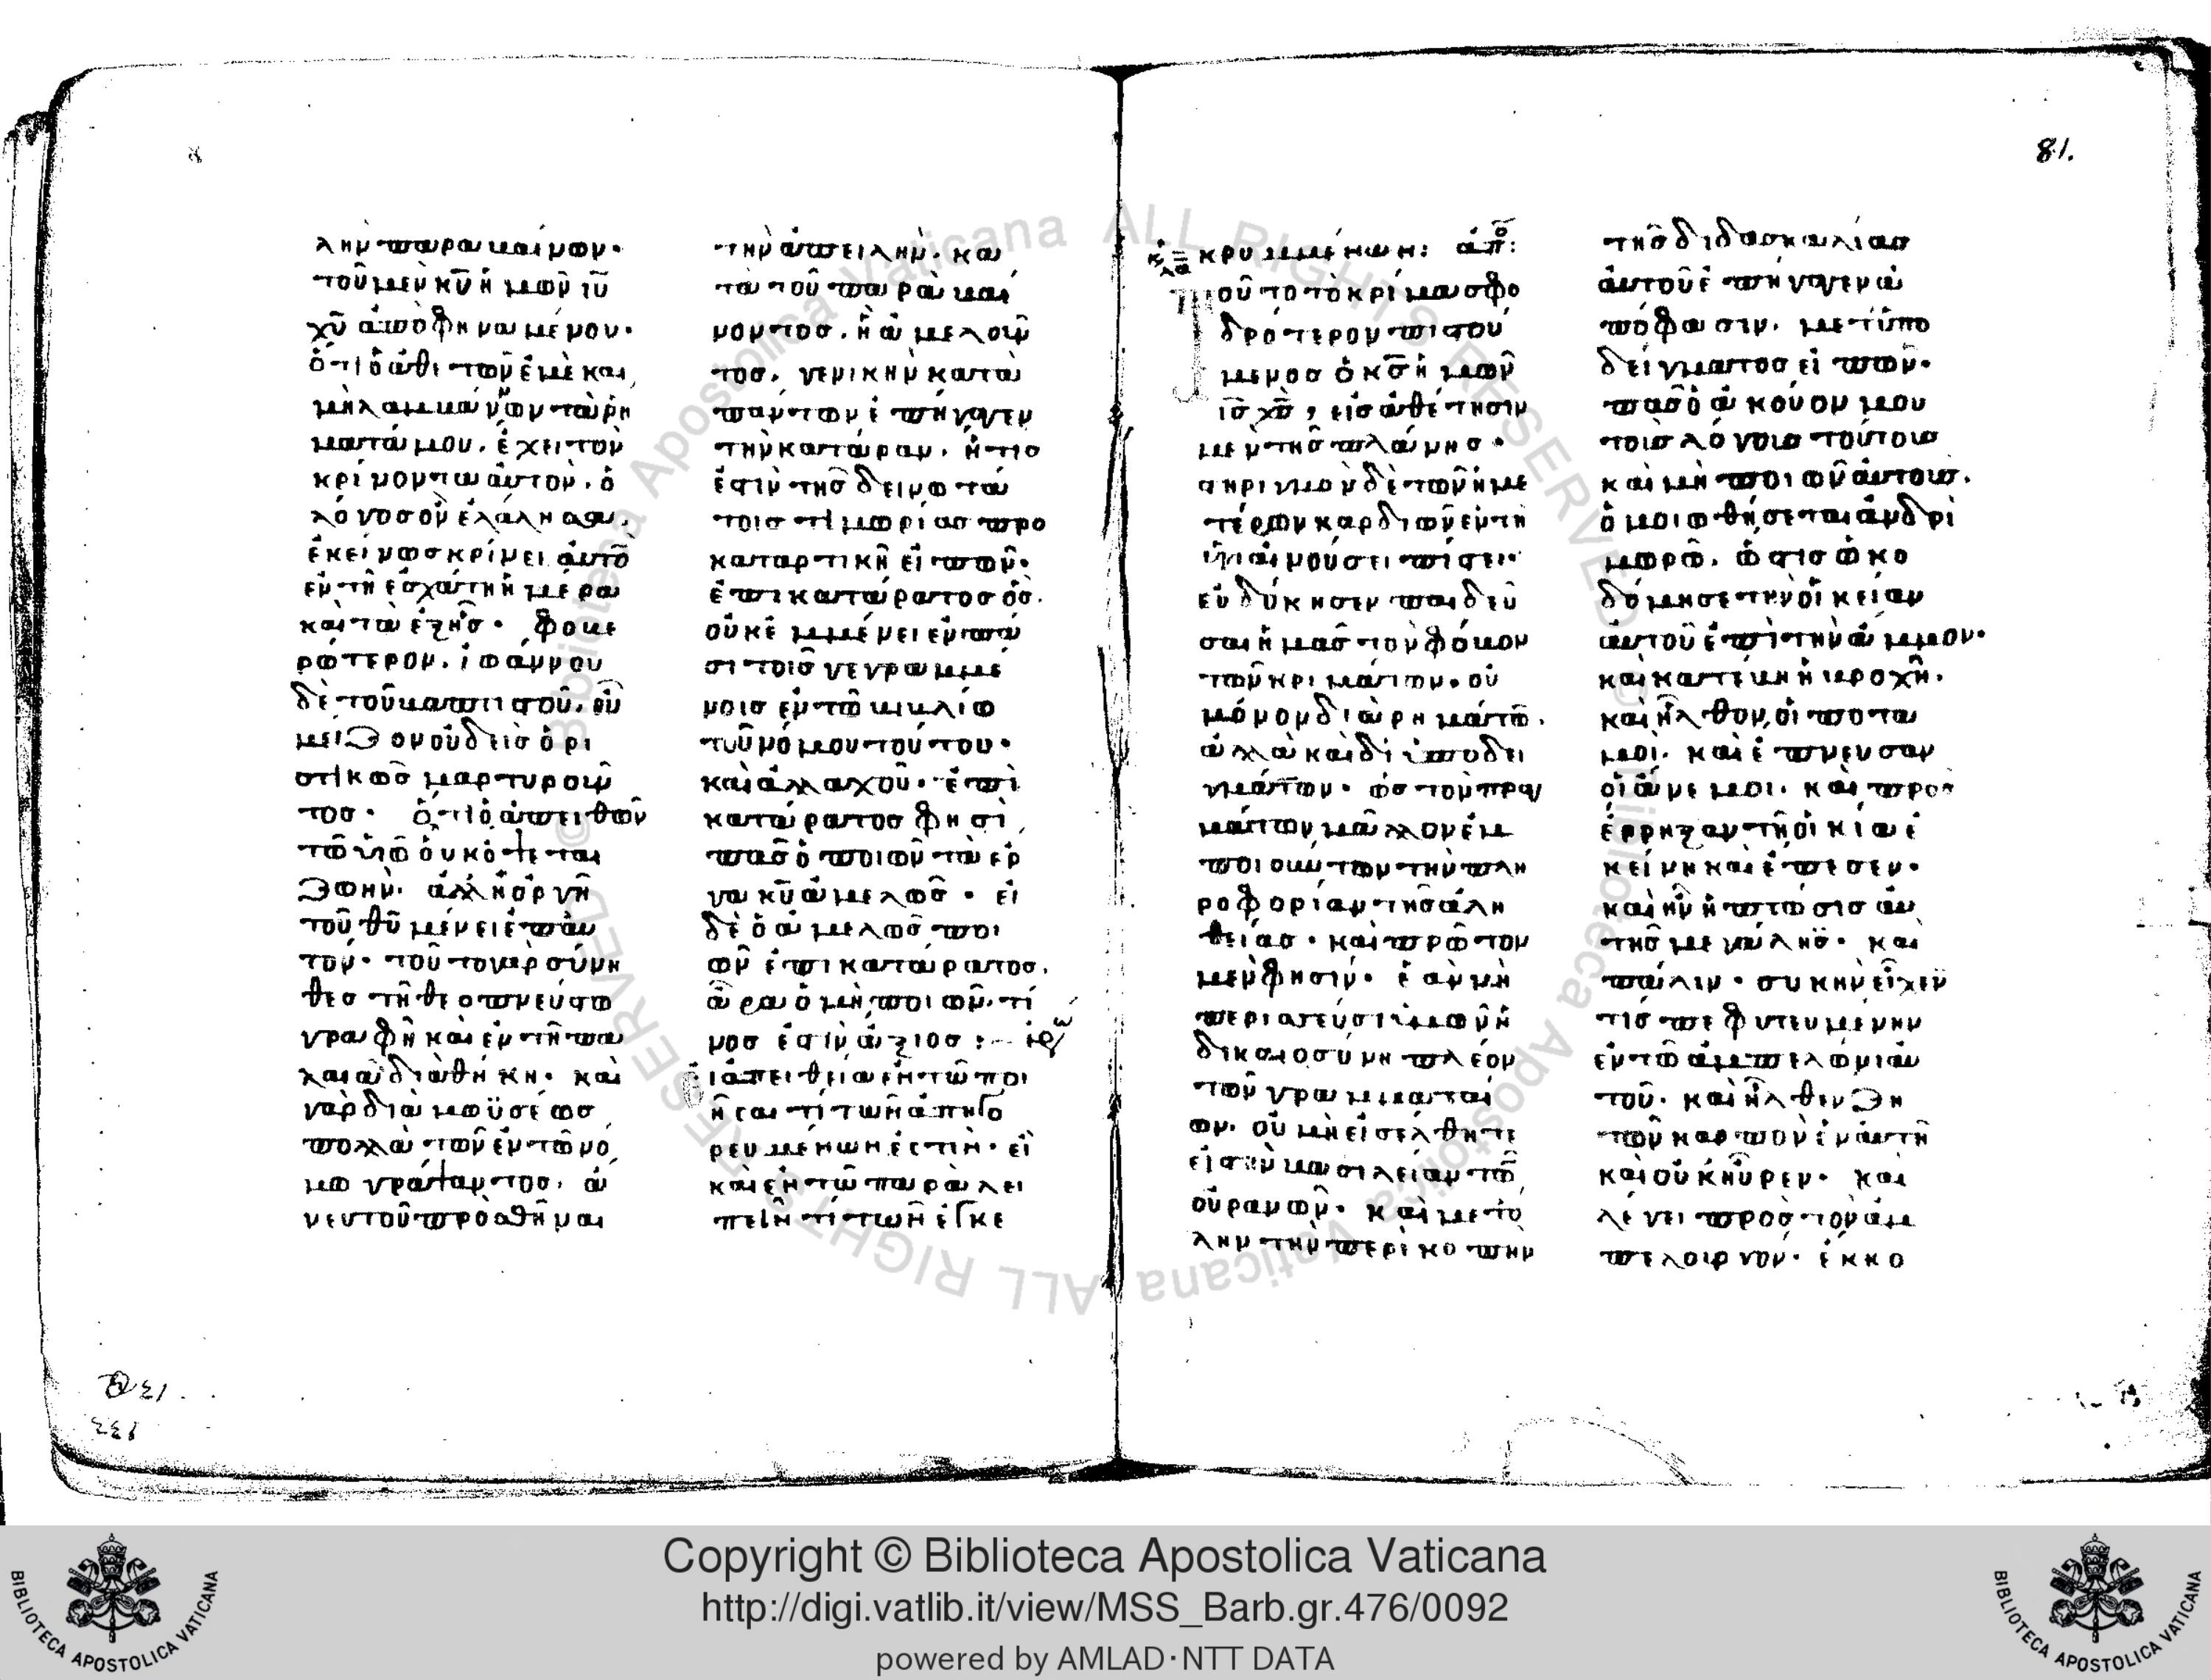 81.
λὴν παραβαίνων·
τοῦ μὲν κυ ἡμῶν ιυ
χυ ἀποφηναμένου·
ὅτι ὁ ἀθετῶν ἐμὲ καὶ
μὴ λαμβάνων τὰ ῥή
ματά μου, ἔχει τὸν
κρίνοντα αὐτὸν, ὁ
λόγος ὃν ἐλάλησα,
ἐκεῖνος κρίνει αὐτὸ
ἐν τῆ ἐσχάτη ἡμέρα
καὶ τὰ ἑξῆς· φοβε
ρώτερον. ἰωάννου
δὲ τοῦ βαπτιστοῦ, οὗ
μείζων οὐδεὶς ὁρι
στικῶς μαρτυροῦν
τος· ὅτι ὁ ἀπειθῶν
τῶ υἱῶ οὐκ ὄψεται
ζωὴν. ἀλλ' ἡ ὀργὴ
τοῦ θυ μένει ἐπ' αὐ
τόν· τοῦτο γὰρ σύνη
θες τῆ θεοπνεύστω
γραφῆ καὶ ἐν τῆ πα
λαιᾶ διαθήκη· καὶ
γὰρ διὰ μωϋσέως
πολλὰ τῶν ἐν τῶ νό
μω γράψαντος, ἀ
νευ τοῦ προσθῆναι
τὴν ἀπειλὴν. κα
τὰ τοῦ παραβαί
νοντος, ἢ ἀμελοῦν
τος, γενικὴν κατὰ
πάντων ἐπήγαγεν
τὴν κατάραν, ἥτις
ἐστὶν τῆς δεινοτά
τοις τιμωρίας προ
καταρτικὴ εἰπὼν·
ἐπικατάρατος ὃς
οὐκ ἐμμένει ἐν πᾶ
σι τοῖς γεγραμμέ
νοις ἐν τῶ βιβλίω
τοῦ νόμου τούτου·
καὶ ἀλλαχοῦ· ἐπὶ
κατάρατος φησὶ,
πᾶς ὁ ποιῶν τὰ ἔρ
γα κυ ἀμελῶς· εἰ
δὲ ὁ ἀμελῶς ποι
ῶν ἐπικατάρατος,
ἄρα ὁ μὴ ποιῶν, τί
νος ἐστὶν ἄξιος:
ἀπείθεια ἐν τῶ ποι
ῆσαί τι τῶν ἀπηγο
ρευμένων ἐστὶν· εἰ
καὶ ἐν τῶ παραλει
πεῖν τι τῶν ἐγκε
κριμμένων: ἀπ:
οῦτο τὸ κρίμα σφο
δρότερον πιστού
μενος ὁ κς ἡμῶν
ις χς, εἰς ἀθέτησιν
μὲν τῆς πλάνης·
στηριγμὸν δὲ τῶν ἡμε
τέρων καρδιῶν ἐν τῆ
ὑγιαινούση πίστει·
εὐδόκησεν παιδεῦ
σαι ἡμᾶς τὸν φόβον
τῶν κριμάτων· οὐ
μόνον διὰ ῥημάτων,
ἀλλὰ καὶ δι' ὑποδει
γμάτων· ὡς τῶν πραγ
μάτων μᾶλλον ἐμ
ποιούντων τὴν πλη
ροφορίαν τῆς ἀλη
θείας· καὶ πρῶτον
μὲν φησὶν· ἐὰν μὴ
περισσεύση ὑμῶν ἡ
δικαιοσύνη πλέον
τῶν γραμματαί
ων, οὐ μὴ εἰσέλθητε
εἰς τὴν βασιλείαν τῶ
οὐρανῶν· καὶ μεθ' ὅ
λην τὴν περικοπὴν
τῆς διδασκαλίας
αὐτοῦ ἐπήγαγεν ἀ
πόφασιν, μεθ' ὑπο
δείγματος εἰπὼν·
πᾶς ὁ ἀκούων μου
τοὺς λόγους τούτους
καὶ μὴ ποιῶν αὐτοὺς,
ὁμοιωθήσεται ἀνδρὶ
μωρῶ, ὅστις ὠκο
δόμησε τὴν οἰκείαν
αὐτοῦ ἐπὶ τὴν ἄμμον·
καὶ κατέβη ἡ βροχὴ.
καὶ ἦλθον οἱ ποτα
μοὶ. καὶ ἔπνευσαν
οἱ ἄνεμοι. καὶ προσ
έρρηξαν τῆ οἰκία ἐ
κείνη καὶ ἔπεσεν·
καὶ ἦν ἡ πτῶσις αὐ
τῆς μεγάλη· καὶ
πάλιν· συκὴν εἶχέν
τις πεφυτευμένην
ἐν τῶ ἀμπελῶνι αὐ
τοῦ. καὶ ἦλθεν ζη
τῶν καρπὸν ἐν αὐτῆ
καὶ οὐχ' ηὗρεν· καὶ
λέγει πρὸς τὸν ἀμ
πελουργόν· ἔκκο
Copyright © Biblioteca Apostolica Vaticana
http://digi.vatlib.it/view/MSS_Barb.gr.476/0092
powered by AMLAD·NTT DATA
BIBLIOTECA APOSTOLICA VATICANA
BIBLIOTECA APOSTOLICA VATICANA